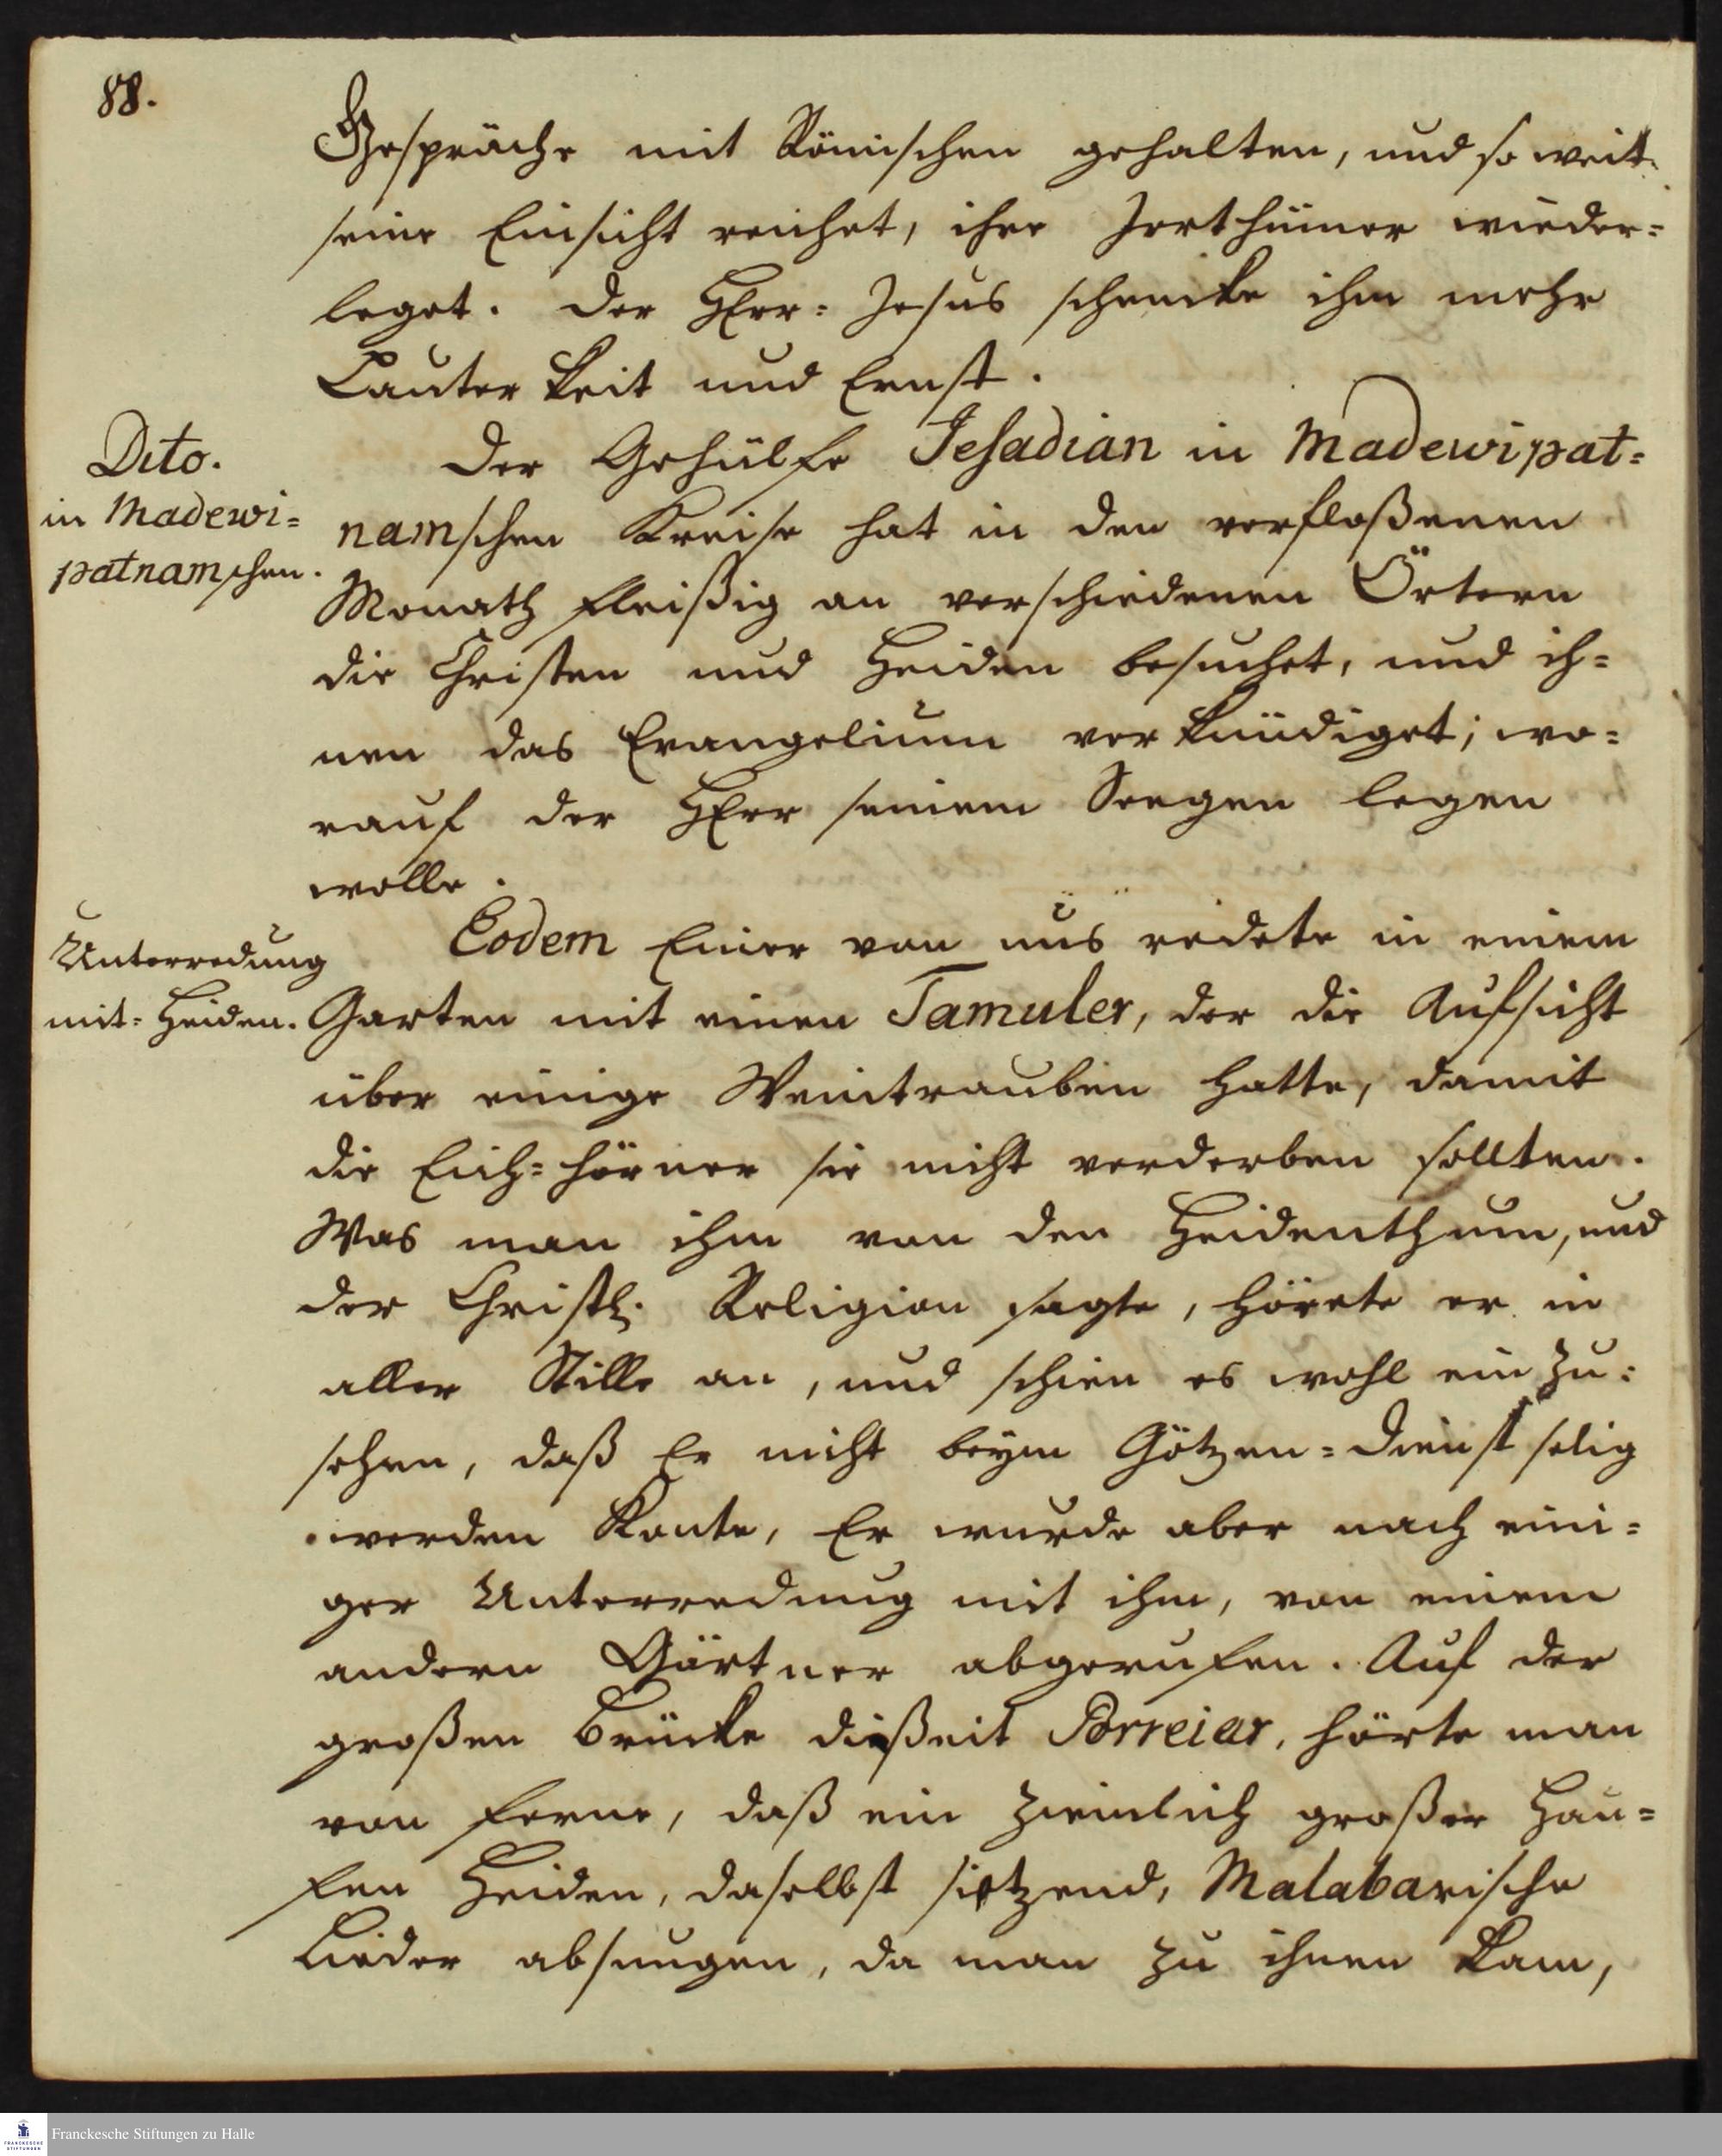 88.
Gespräche mit Römischen gehalten, und so weit
seine Einsicht reichet, ihre Jrrthümer wieder=
leget. Der HErr= Jesus schencke ihm mehr
Lauterkeit und Ernst.
Dito.
in Madewi=
patnamschen.
Der Gehülfe Jesadian in Madewipat=
namschen Kreise hat in den verfloßenen
Monath fleißig an verschiedenen Örtern
die Christen und Heiden besuchet, und ih=
nen das Evangelium verkündiget; wo=
rauf der HErr seinem Seegen legen
wolle.
Unterredung
mit= Heiden.
Eodem Einer von uns redete in einem
Garten mit einen Tamuler, der die Aufsicht
über einige Weintrauben hatte, damit
die Eich=hörner sie nicht verderben sollten.
Was man ihm von den Heidenthum, und
der Christl. Religion sagte, hörete er in
aller Stille an, und schien es wohl ein zu=
sehen, daß Er nicht beym Götzen=Dienst selig
werden konte, Er wurde aber nach eini=
ger Unterredung mit ihm, von einem
andern Gärtner abgerufen. Auf der
großen Brücke dißeit Porreiar, hörte man
von ferne, daß ein ziemlich großer Hau=
fen Heiden, daselbst sitzend, Malabarische
Lieder absungen, da man zu ihnen kam,
Franckesche Stiftungen zu Halle
FRANCKESCHE
STIFTUNGEN